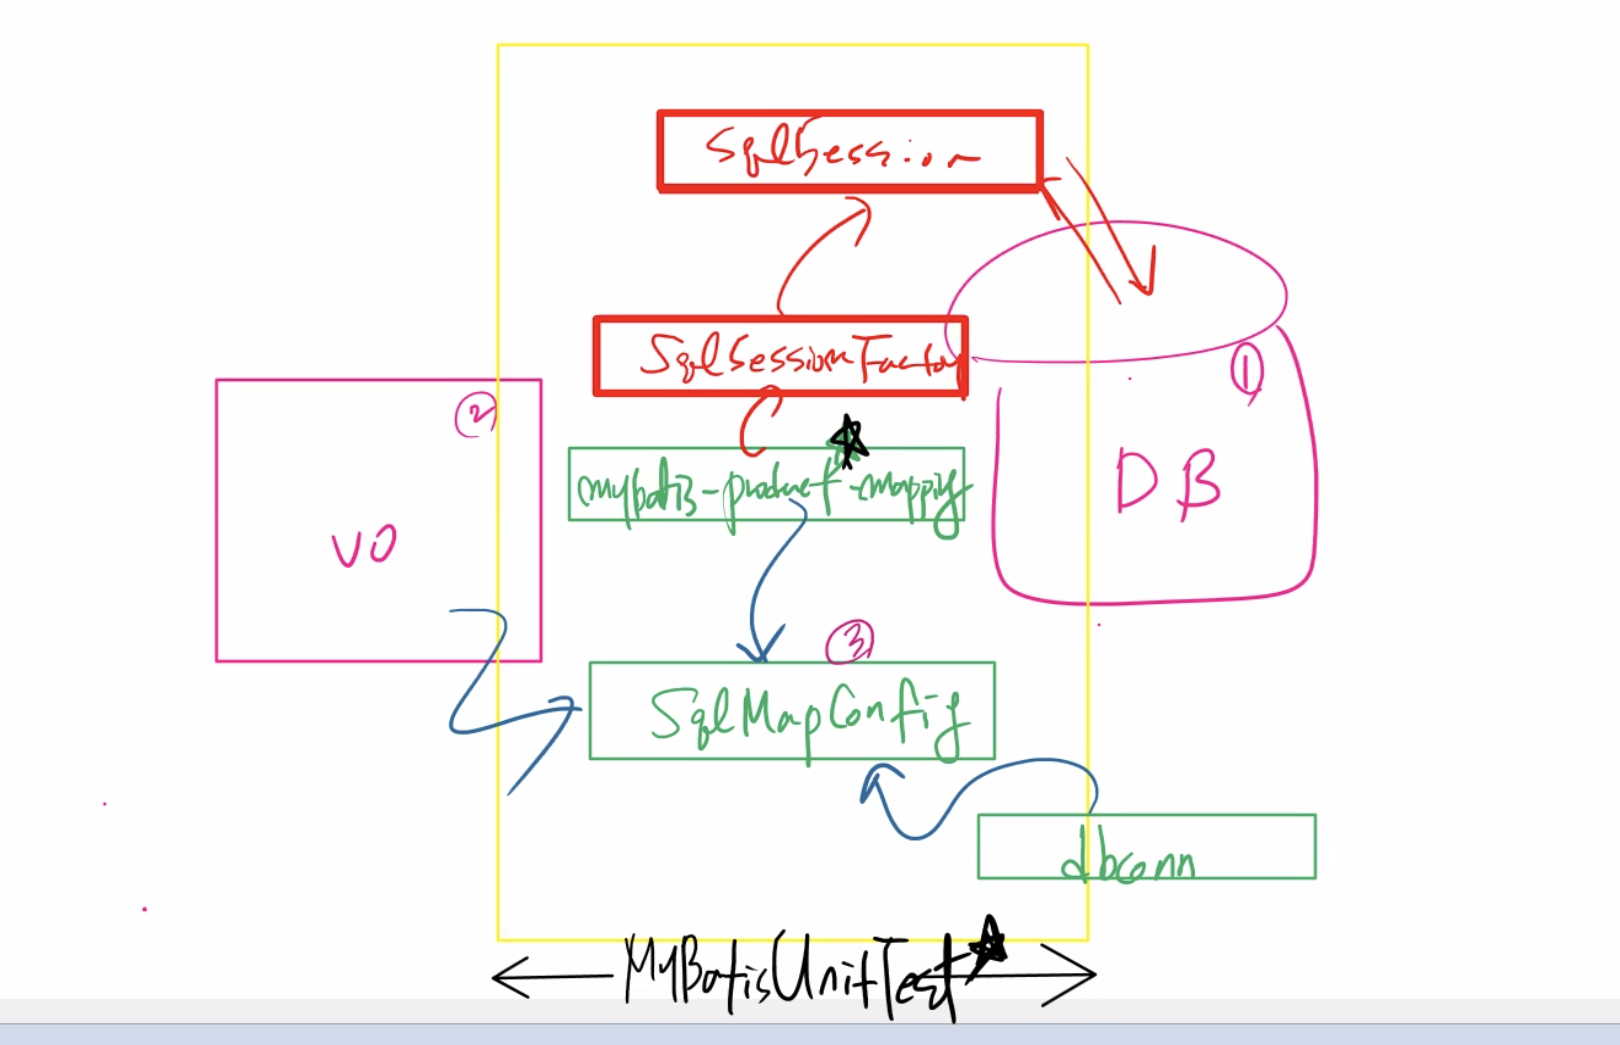 SqlSession
SqlSessionFactory
①
②
mybatis-product-mapping
DB
VO
③
SqlMapConfig
dbconn
MyBatisUnitTest